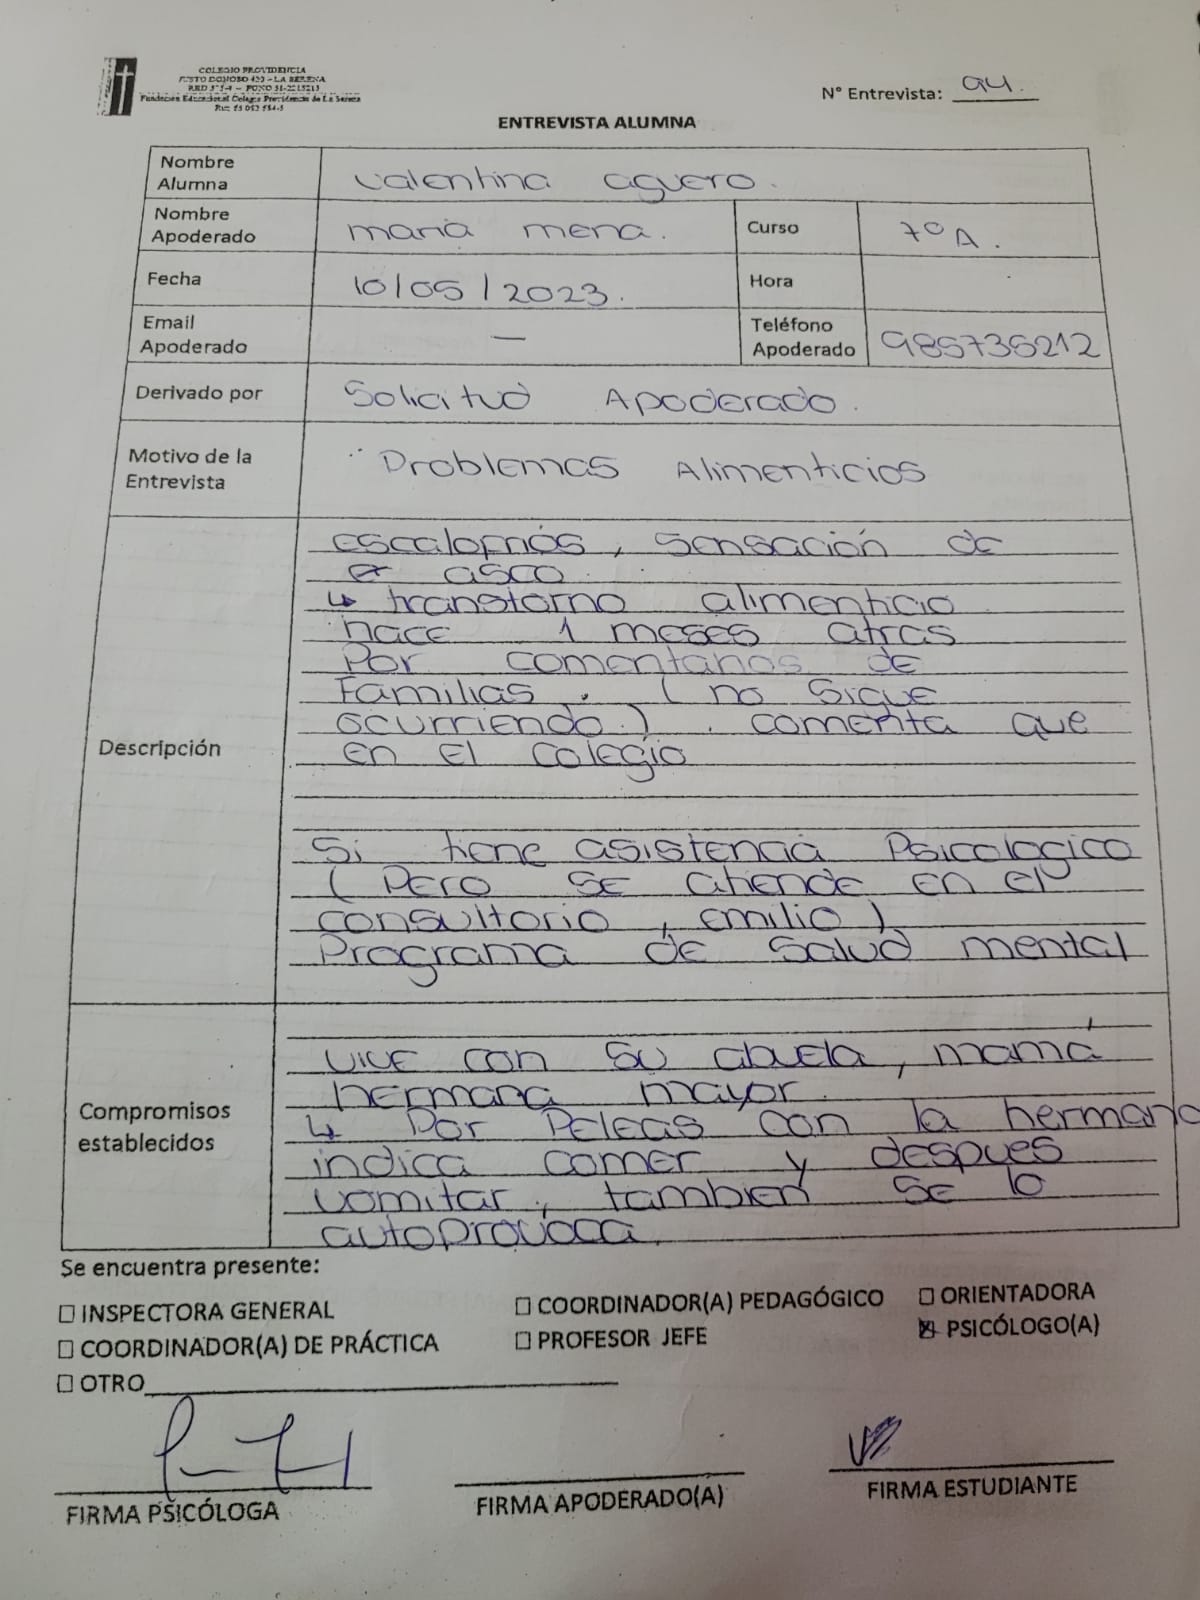 COLEGIO PROVIDENCIA
JUSTO DONOSO 420 - LA SERENA
Fundación Educacional Colegio Providencia de La Serena
N° Entrevista: 94.
ENTREVISTA ALUMNA
Nombre Alumna
valentina aguero.
Nombre Apoderado
maria mena.
Curso
7º A.
Fecha
10/05/2023.
Hora
Email Apoderado
—
Teléfono Apoderado
985735212
Derivado por
Solicitud Apoderado.
Motivo de la Entrevista
Problemas Alimenticios
Descripción
escalofrios, sensación de
asco
↳ transtorno alimenticio
hace 1 meses atras
Por comentarios de
Familias. (no sigue
ocurriendo.) comenta que
en el colegio
Si tiene asistencia Psicologico
(Pero se atiende en el
consultorio, emilio)
Programa de Salud mental
Compromisos establecidos
vive con su abuela, mamá
hermana mayor.
↳ Por Peleas con la hermana
indica comer y despues
vomitar, tambien se lo
autoprovoca.
Se encuentra presente:
☐ INSPECTORA GENERAL
☐ COORDINADOR(A) PEDAGÓGICO
☐ ORIENTADORA
☐ COORDINADOR(A) DE PRÁCTICA
☐ PROFESOR JEFE
☒ PSICÓLOGO(A)
☐ OTRO
FIRMA PSICÓLOGA
FIRMA APODERADO(A)
FIRMA ESTUDIANTE